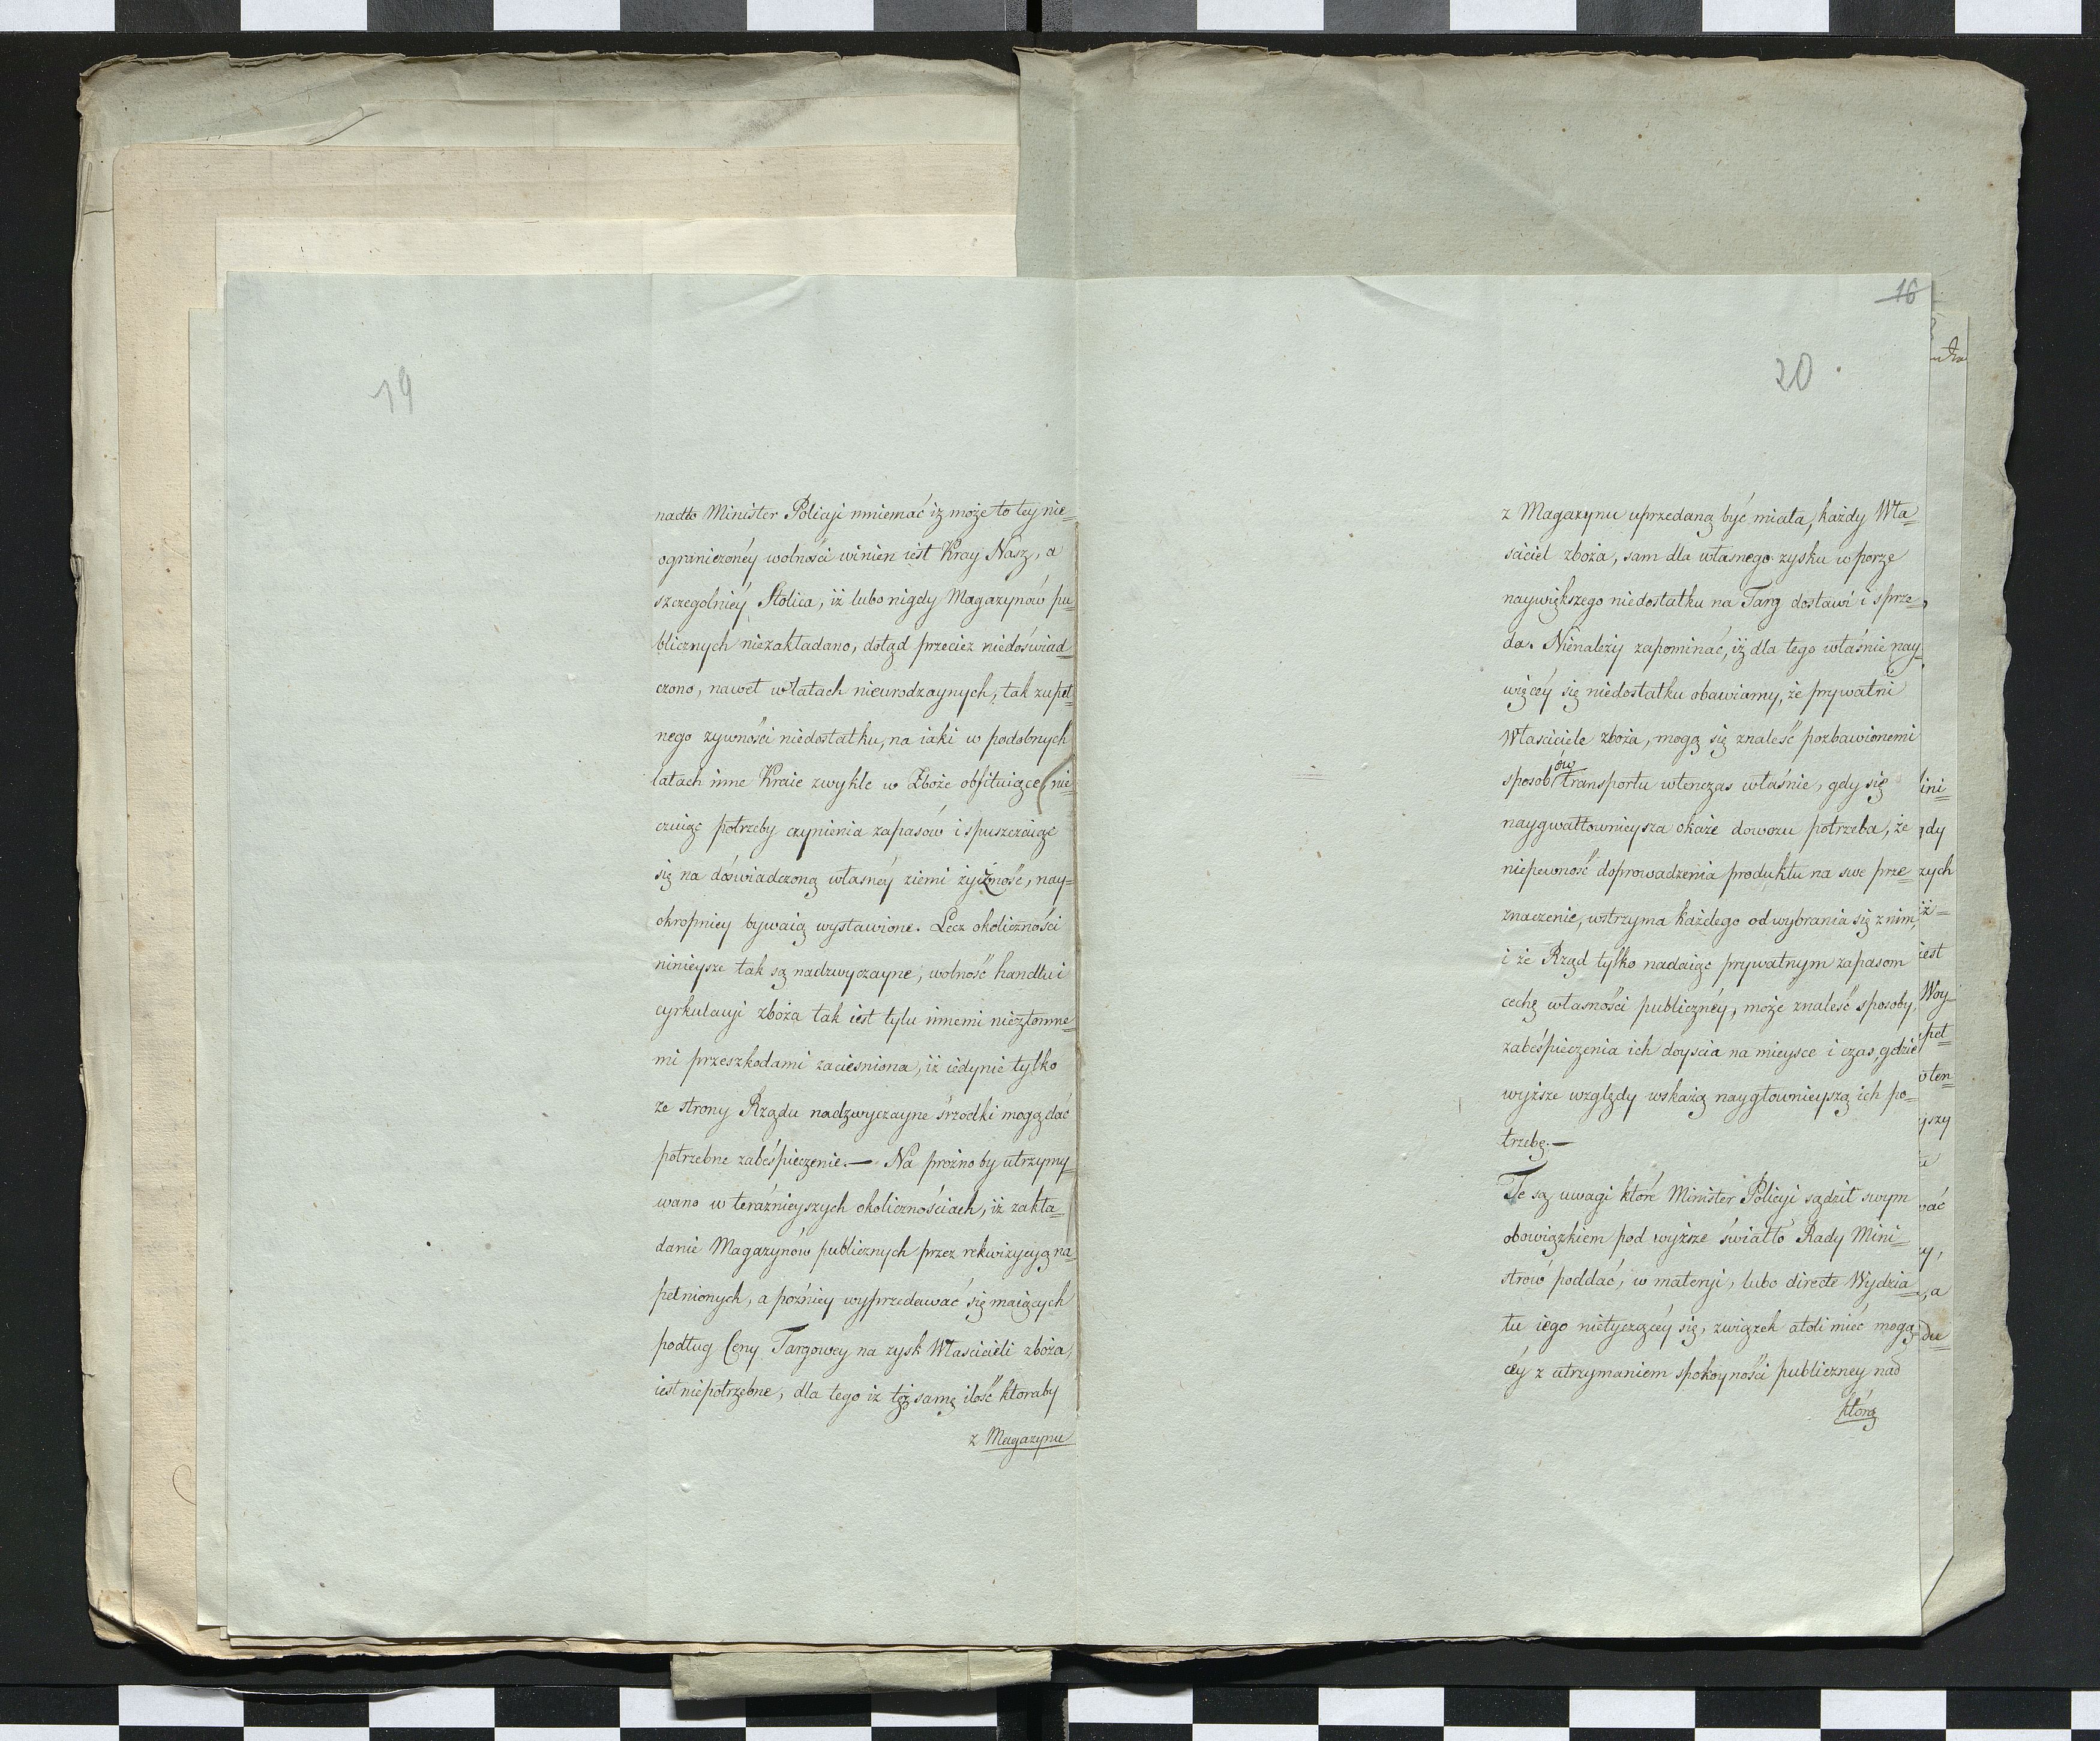 19
nadto Minister Policyi mniemać iż może to tey nie=
ograniczoney wolności winien iest Kray Nasz, a
szczegolniey Stolica, iż lubo nigdy Magazynów pu=
blicznych niezakładano, dotąd przecież niedoświad=
czono, nawet w latach nieurodzaynych, tak zupeł=
nego żywności niedostatku, na iaki w podobnych
latach inne Kraie zwykle w Zboże obfituiące (nie
czuiąc potrzeby czynienia zapasów i spuszczaiąc
się na doświadczoną własney ziemi żyizność, nay=
okropniey bywaią wystawione. Lecz okoliczności
ninieysze tak są nadzwyczayne, wolność handlu i
cyrkulacyi zboża tak iest tylu innemi niezłomne=
mi przeszkodami zacieśniona, iż iedynie tylko
ze strony Rządu nadzwyczayne śrzodki mogą dać
potrzebne zabeśpieczenie.— Na prożno by utrzymy=
wano w teraźnieyszych okolicznościach, iż zakła=
danie Magazynów publicznych przez rekwizycyą na=
pełnionych, a poźniey wyprzedawać się maiących
podług Ceny Targowey na zysk Właścicieli zboża,
iest niepotrzebne, dla tego iż tęż samę ilość ktoraby
z Magazynu
16
20
z Magazynu uprzedaną być miała, każdy Wła=
ściciel zboża, sam dla własnego zysku w porze
naywiększego niedostatku na Targ dostawi i sprze=
da. Nienależy zapominać, iż dla tego właśnie nay=
więcey się niedostatku obawiamy, że prywatni
Właściciele zboża, mogą się znaleść pozbawionemi
sposobów transportu wtenczas właśnie, gdy się
naygwałtownieysza okaże dowozu potrzeba, że
niepewność doprowadzenia produktu na swe prze=
znaczenie, wstrzyma każdego od wybrania się z nim,
i że Rząd tylko nadaiąc prywatnym zapasom
cechę własności publiczney, może znaleść sposoby,
zabeśpieczenia ich doyścia na mieysce i czas, gdzie
wyższe względy wskażą naygłownieyszą ich po=
trzebę.—
Te są uwagi które Minister Policyi sądził swym
obowiązkiem pod wyższe światło Rady Mini=
strow poddać, w materyi, lubo directe Wydzia=
łu iego nietyczącey się, związek atoli mieć mogą=
cey z utrzymaniem spokoyności publiczney nad
którą